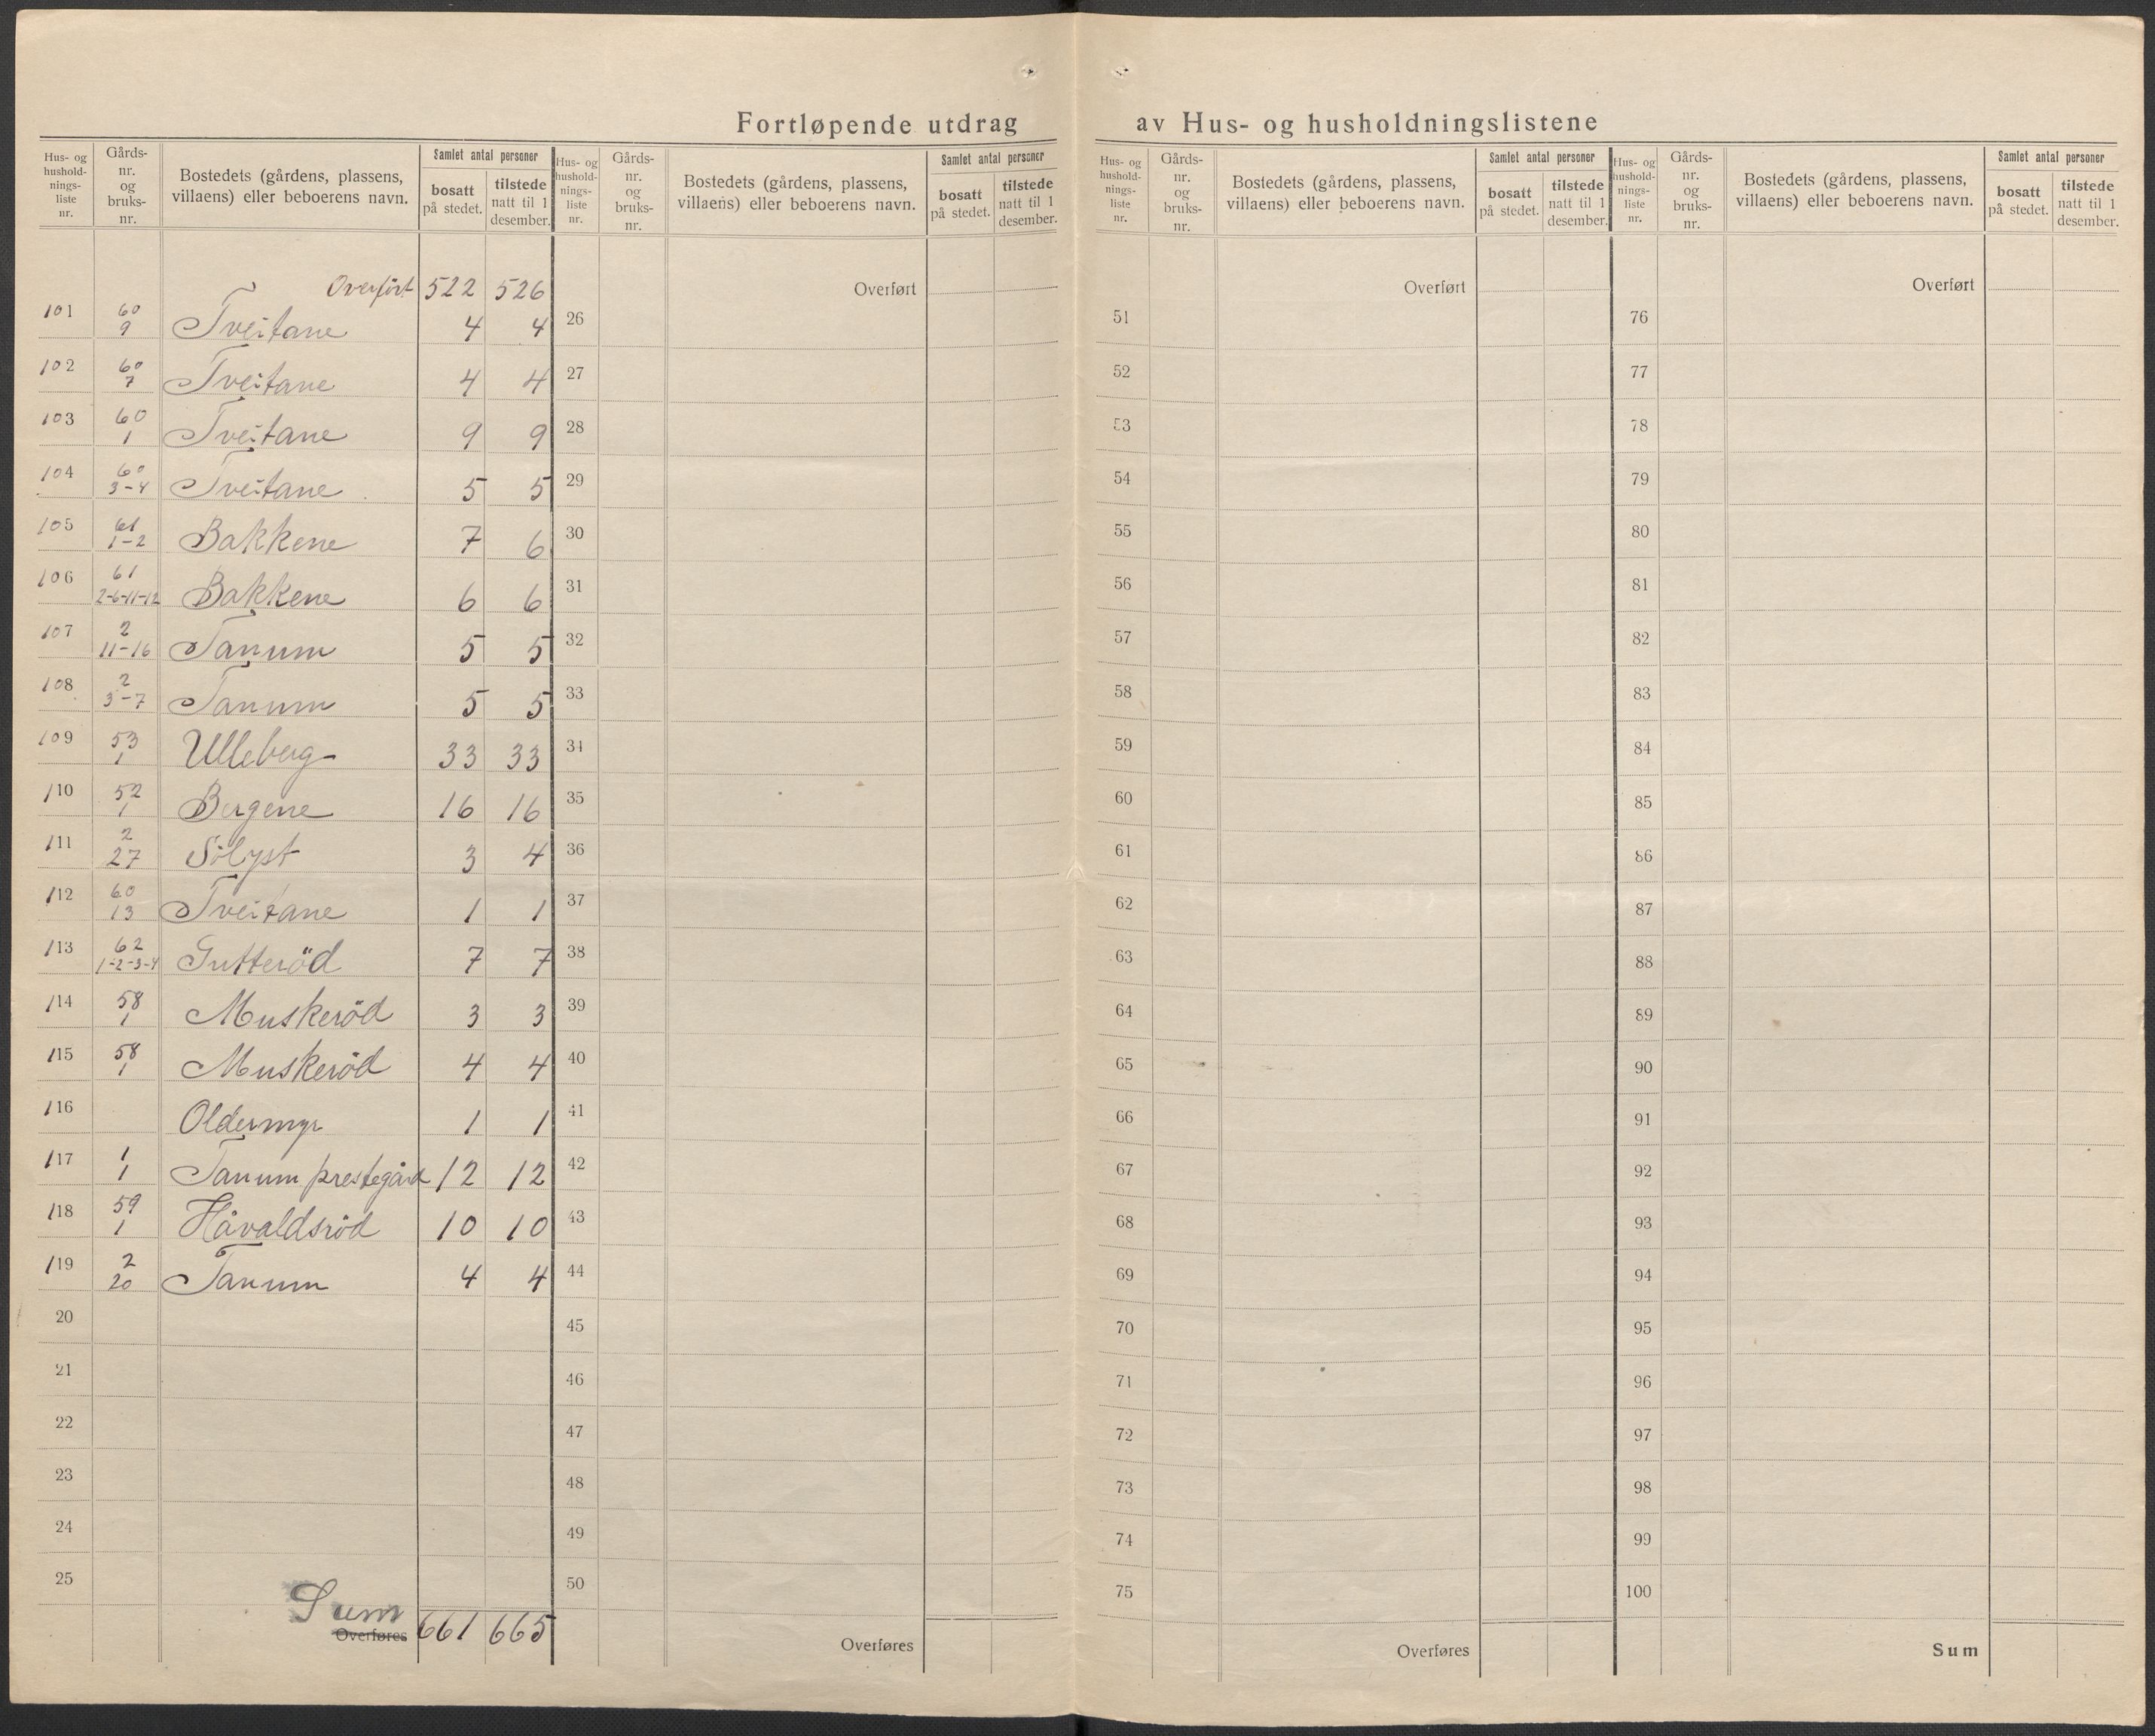 Fortløpende utdrag av Hus- og husholdningslistene
Hus- og hushold-nings-liste nr. | Gårds-nr. og bruks-nr. | Bostedets (gårdens, plassens, villaens) eller beboerens navn. | Samlet antal personer | bosatt på stedet. | tilstede natt til 1 desember.
Overført 522 526
101 60 9 Tveitane 4 4
102 60 7 Tveitane 4 4
103 60 1 Tveitane 9 9
104 60 3-4 Tveitane 5 5
105 61 1-2 Bakkene 7 6
106 61 2-6-11-12 Bakkene 6 6
107 2 11-16 Tanum 5 5
108 2 3-7 Tanum 5 5
109 53 1 Ulleberg 33 33
110 52 1 Bergene 16 16
111 2 27 Solyst 3 4
112 60 13 Tveitane 1 1
113 62 1-2-3-4 Gutteröd 7 7
114 58 1 Muskeröd 3 3
115 58 1 Muskeröd 4 4
116 Oldermyr 1 1
117 1 1 Tanum prestegård 12 12
118 59 1 Håvaldsröd 10 10
119 2 20 Tanum 4 4
20
21
22
23
24
25
Sum
Overføres 661 665
Hus- og hushold-nings-liste nr. | Gårds-nr. og bruks-nr. | Bostedets (gårdens, plassens, villaens) eller beboerens navn. | Samlet antal personer | bosatt på stedet. | tilstede natt til 1 desember.
Overført
26
27
28
29
30
31
32
33
34
35
36
37
38
39
40
41
42
43
44
45
46
47
48
49
50
Overføres
Hus- og hushold-nings-liste nr. | Gårds-nr. og bruks-nr. | Bostedets (gårdens, plassens, villaens) eller beboerens navn. | Samlet antal personer | bosatt på stedet. | tilstede natt til 1 desember.
Overført
51
52
53
54
55
56
57
58
59
60
61
62
63
64
65
66
67
68
69
70
71
72
73
74
75
Overføres
Hus- og hushold-nings-liste nr. | Gårds-nr. og bruks-nr. | Bostedets (gårdens, plassens, villaens) eller beboerens navn. | Samlet antal personer | bosatt på stedet. | tilstede natt til 1 desember.
Overført
76
77
78
79
80
81
82
83
84
85
86
87
88
89
90
91
92
93
94
95
96
97
98
99
100
Sum